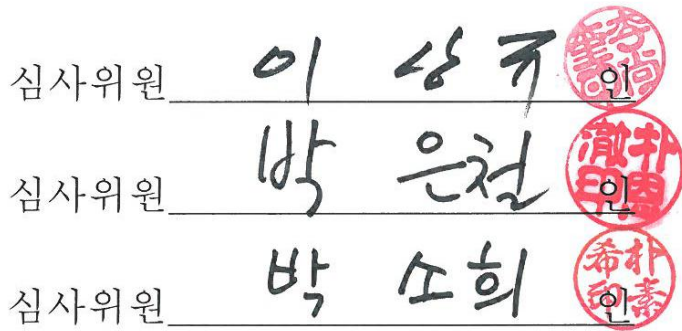 심사위원 이 상 규 인
심사위원 박 은철 인
심사위원 박 소희 인